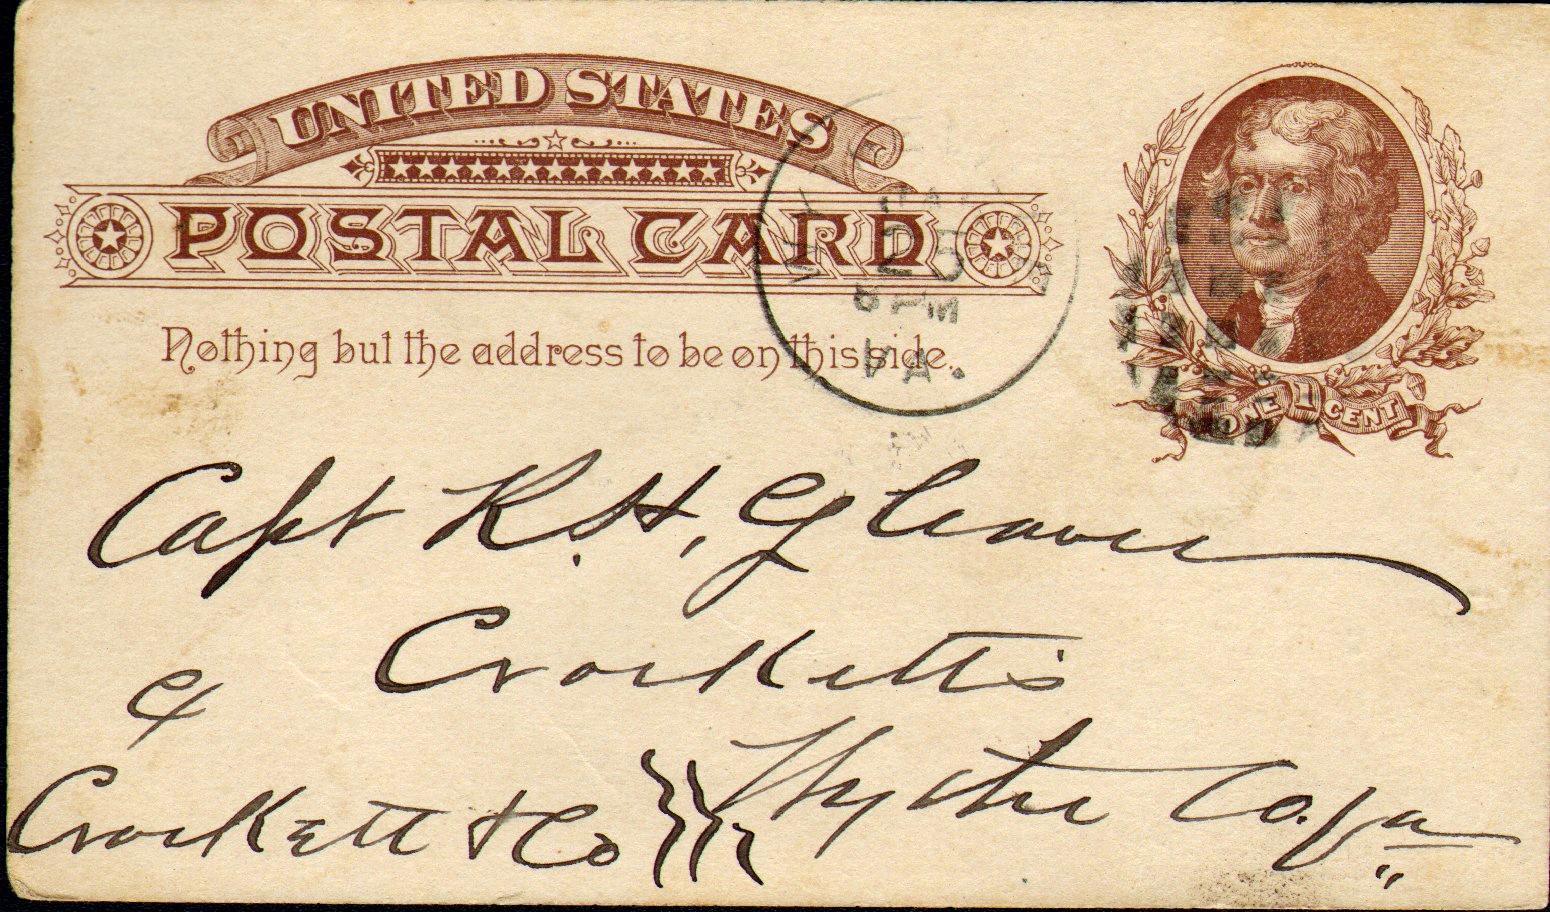 UNITED STATES
POSTAL CARD
Nothing but the address to be on this side.
PM
VA.
ONE 1 CENT
Capt R. H, Gleaves
Crockett's
&
Wythe Co. Va
Crockett & Co